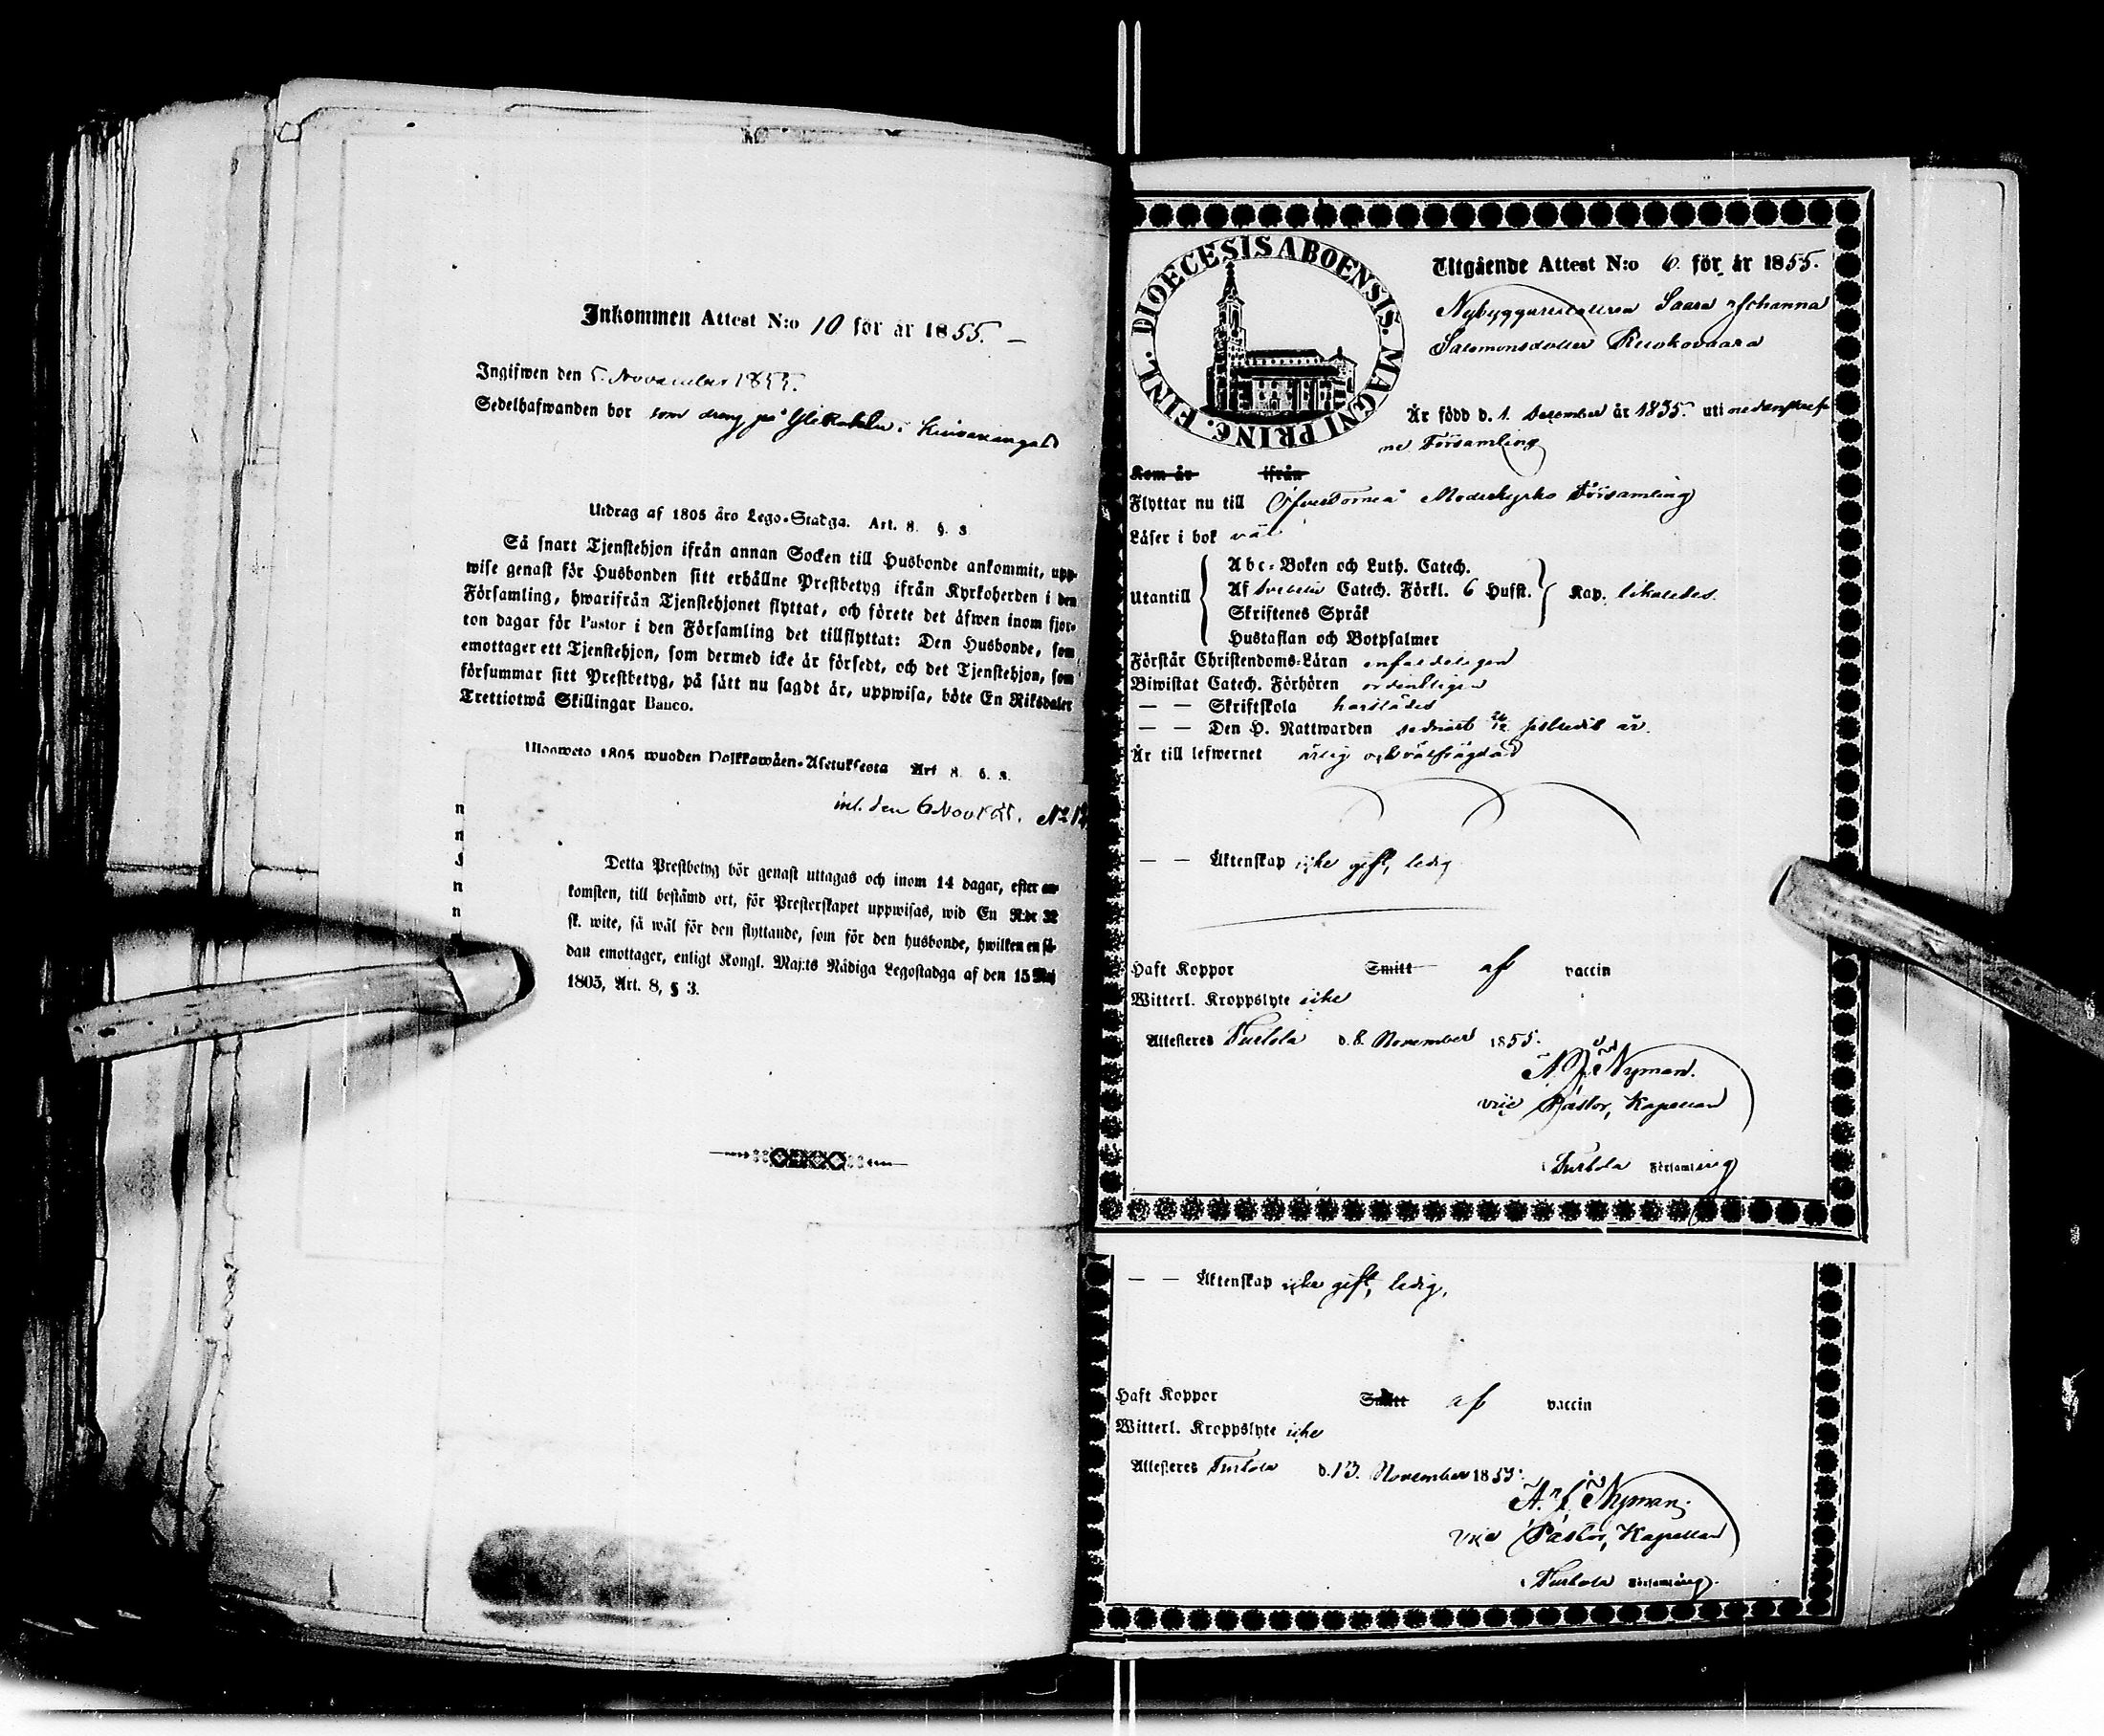 Inkommen Attest N:o 10 för år 1855.
Ingifwen den 5 November 1855.
Sedelhafwanden bor som dreng på
Utdrag af 1805 års Lego-Stadga. Art. 8. §. 3
Så snart Tjenstehjon ifrån annan Socken till Husbonde ankommit, upp-
wise genast för Husbonden sitt erhållne Prestbetyg ifrån Kyrkoherden i den
Församling, hwarifrån Tjenstehjonet flyttat, och förete det äfwen inom fjor-
ton dagar för Pastor i den Församling det tillflyttat: Den Husbonde, som
emottager ett Tjenstehjon, som dermed icke är försedt, och det Tjenstehjon, som
försummar sitt Prestbetyg, på sätt nu sagdt är, uppwisa, böte En Riksdaler
Trettiotwå Skillingar Banco.
Ulosweto 1805 wuoden Palkkawäen-Asetuksesta Art 8. §. 3.
inl. den 6 Nov 1855. No 12
n
n
J
n
n
Detta Prestbetyg bör genast uttagas och inom 14 dagar, efter an-
komsten, till bestämd ort, för Presterskapet uppwisas, wid En R:dr 32
sk. wite, så wäl för den flyttande, som för den husbonde, hwilken en så-
dan emottager, enligt Kongl. Maj:ts Nådiga Legostadga af den 15 Maj
1805, Art. 8, § 3.
DIOECESIS ABOENSIS. MAGNI PRINC. FINL.
Utgående Attest N:o 6. för år 1855.
Nybyggaredottren Saara Johanna
Salomonsdotter Ruokovaara
Är född d. 1. December år 1835. uti nedanskref-
ne Församling
Kom år ifrån
Flyttar nu till Öfvertorneå Moderkyrko Församling
Läser i bok väl
Utantill
Abc-Boken och Luth. Catech.
Af Svebelii Catech. Förkl. 6 Hufst.
Skriftenes Språk
Hustaflan och Botpsalmer
Kap. likaledes.
Förstår Christendoms-Läran enfaldeligen
Biwistat Catech. Förhören ordentligen
— — Skriftskola
— — Den H. Nattwarden sednast
Är till lefwernet ärlig och välfrägdad
— — Äktenskap icke gift, ledig
Haft Koppor Smitt af vaccin
Witterl. Kroppslyte icke
Attesteres Turtola d. 8. November 1855.
A. J. Nyman.
vice Pastor, Kapellan
i Turtola Församling
— — Äktenskap icke gift, ledig,
Haft Koppor Smitt af vaccin
Witterl. Kroppslyte icke
Attesteres Turtola d. 13. November 1855.
A. J. Nyman.
vice Pastor, Kapellan
i Turtola Församling.